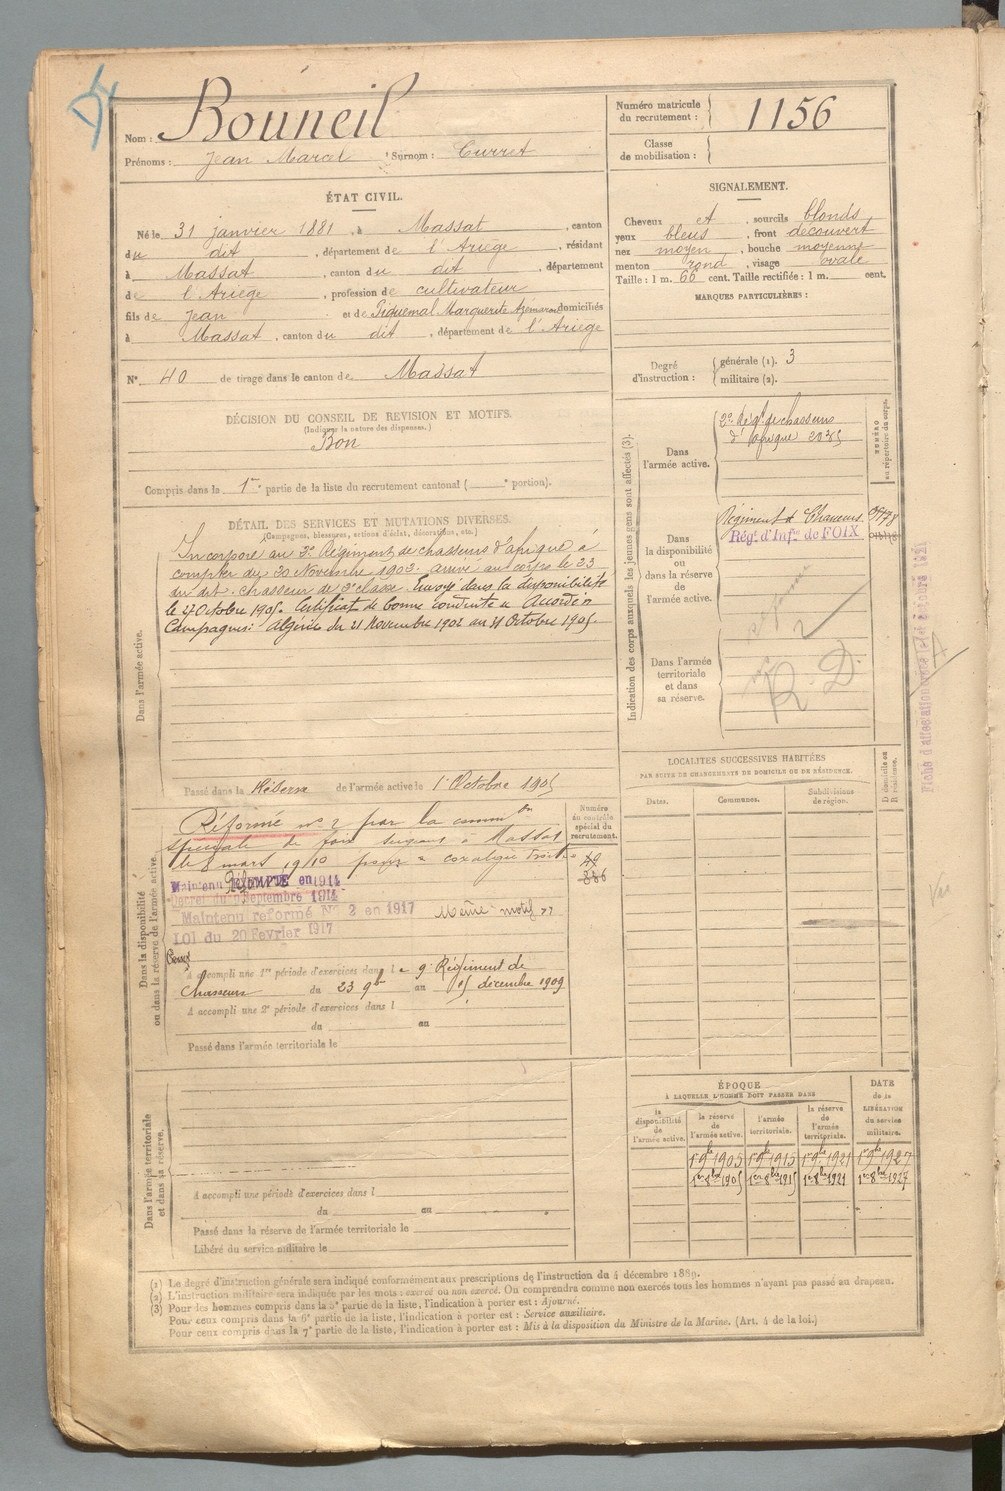 Nom : Rouneil
Prénoms : Jean Marcel Surnom : Curret
Numéro matricule du recrutement : 1156
Classe de mobilisation :
ÉTAT CIVIL.
Né le 31 janvier 1881, à Massat, canton
du dit, département de l'Ariège, résidant
à Massat, canton du dit, département
de l'Ariège, profession de cultivateur
fils de Jean et de Piquemal Marguerite domiciliés
à Massat, canton du dit, département de l'Ariège
N° 40 de tirage dans le canton de Massat
SIGNALEMENT.
Cheveux et, sourcils blonds
yeux bleus, front découvert
nez moyen, bouche moyenne
menton rond, visage ovale
Taille : 1 m. 66 cent. Taille rectifiée : 1 m. cent.
MARQUES PARTICULIÈRES :
Degré d'instruction : générale (1). 3
militaire (2).
DÉCISION DU CONSEIL DE REVISION ET MOTIFS.
(Indiquer la nature des dispenses.)
Bon
Compris dans la 1re partie de la liste du recrutement cantonal ( portion).
DÉTAIL DES SERVICES ET MUTATIONS DIVERSES.
(Campagnes, blessures, actions d'éclat, décorations, etc.)
Dans l'armée active.
Incorporé au 2e Régiment de chasseurs d'afrique à
compter du 20 Novembre 1902. arrivé au corps le 23
du dit. chasseur de 2e classe. Envoyé dans la disponibilité
le 27 Octobre 1905. Certificat de bonne conduite Accordé.
Campagnes : Algérie du 21 Novembre 1902 au 31 Octobre 1905.
Passé dans la Réserve de l'armée active le 1er Octobre 1905
Indication des corps auxquels les jeunes gens sont affectés (3).
Dans l'armée active.
2e Régt de chasseurs
d'afrique 2035
NUMÉRO au répertoire du corps.
Dans la disponibilité ou dans la réserve de l'armée active.
Régiment de Chasseurs
Régt. d'Infie de FOIX
Dans l'armée territoriale et dans sa réserve.
R. D
LOCALITÉS SUCCESSIVES HABITÉES
PAR SUITE DE CHANGEMENTS DE DOMICILE OU DE RÉSIDENCE.
Dates. Communes. Subdivisions de région. D domicile ou R résidence.
Dans la disponibilité ou dans la réserve de l'armée active.
Numéro au contrôle spécial du recrutement.
Réformé n° 2 par la commion
spéciale de foix siégeant à Massat
le 8 mars 1910 pour
49
886
Maintenu Réformé en 1914
Décret du 9 Septembre 1914
Maintenu reformé N° 2 en 1917 Même motif
Loi du 20 Fevrier 1917
A accompli une 1re période d'exercices dans le 9e Régiment de
Chasseurs du 23 9bre au 15 décembre 1909
A accompli une 2e période d'exercices dans l
du au
Passé dans l'armée territoriale le
Dans l'armée territoriale et dans sa réserve.
A accompli une période d'exercices dans l
du au
Passé dans la réserve de l'armée territoriale le
Libéré du service militaire le
ÉPOQUE
À LAQUELLE L'HOMME DOIT PASSER DANS
la disponibilité de l'armée active. la réserve de l'armée active. l'armée territoriale. la réserve de l'armée territoriale.
DATE de la LIBÉRATION du service militaire.
1er 9bre 1905 1er 9bre 1915 1er 9bre 1921 1er 9bre 1927
1er 8bre 1905 1er 8bre 1915 1er 8bre 1921 1er 8bre 1927
(1) Le degré d'instruction générale sera indiqué conformément aux prescriptions de l'instruction du 4 décembre 1889.
(2) L'instruction militaire sera indiquée par les mots : exercé ou non exercé. On comprendra comme non exercés tous les hommes n'ayant pas passé au drapeau.
(3) Pour les hommes compris dans la 5e partie de la liste, l'indication à porter est : Ajourné.
Pour ceux compris dans la 6e partie de la liste, l'indication à porter est : Service auxiliaire.
Pour ceux compris dans la 7e partie de la liste, l'indication à porter est : Mis à la disposition du Ministre de la Marine. (Art. 4 de la loi.)